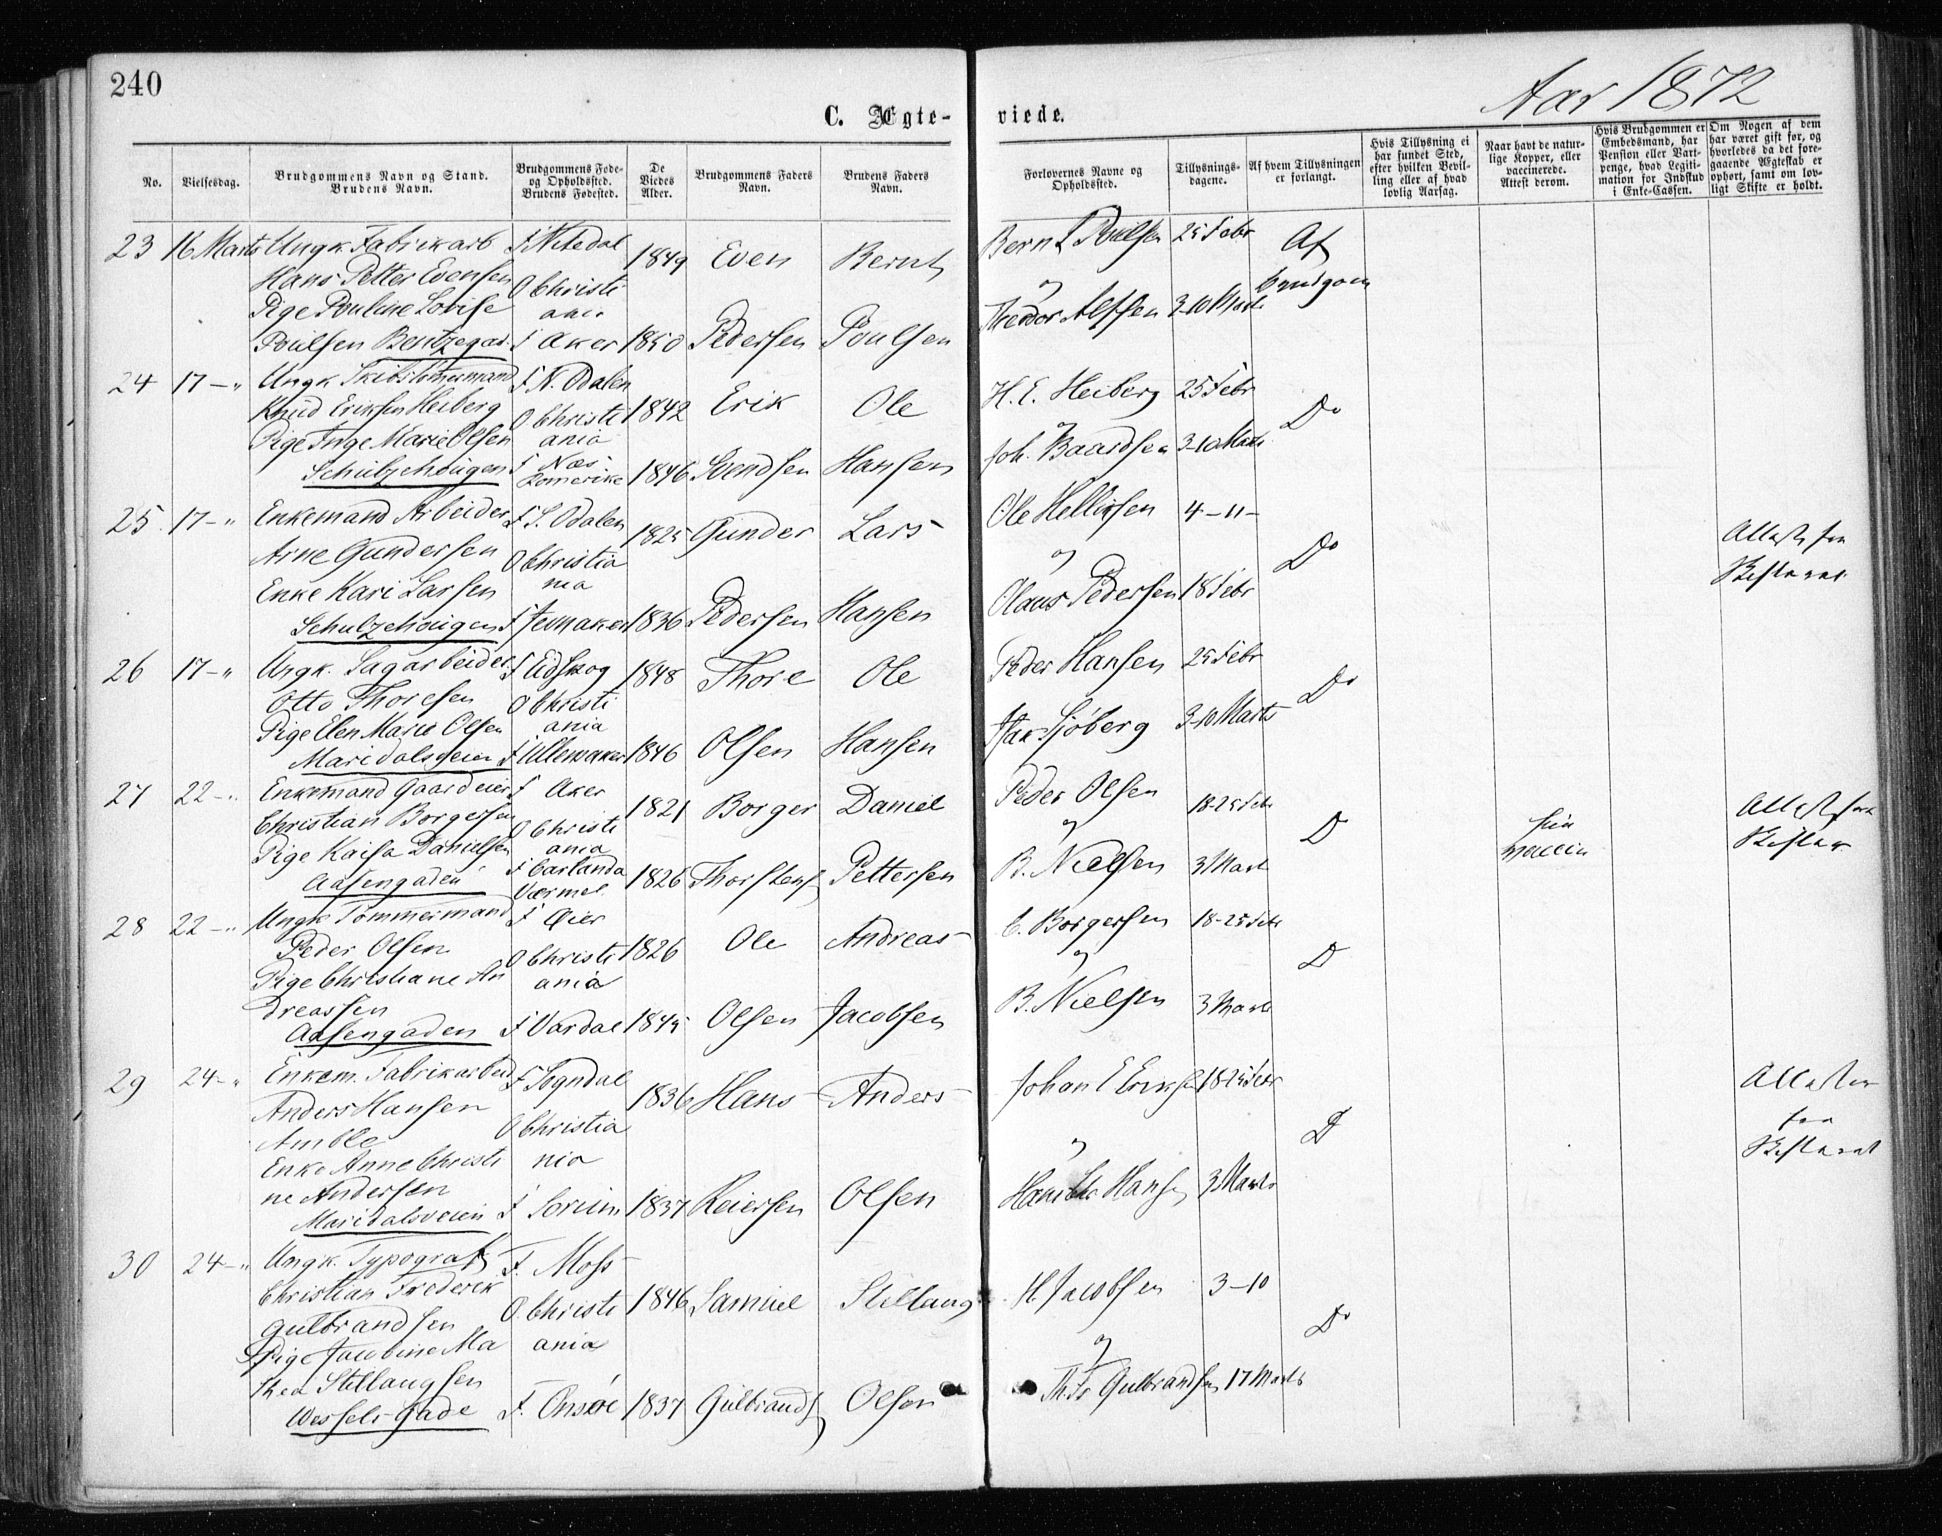 240
Aar 1872
C. Ægte-
viede.
No.
Vielsesdag.
Brudgommens Navn og Stand.
Brudens Navn.
Brudgommens Føde-
og Opholdssted.
Brudens Fødested.
De
Viedes
Alder.
Brudgommens Faders
Navn.
Brudens Faders
Navn.
Forlovernes Navne og
Opholdssted.
Tillysnings-
dagene.
Af hvem Tillysningen
er forlangt.
Hvis Tillysning ei
har fundet Sted,
efter hvilken Bevil-
ling eller af hvad
lovlig Aarsag.
Naar havt de natur-
lige Kopper, eller
vaccinerede.
Attest derom.
Hvis Brudgommen er
Embedsmand, har
Pension eller Vart-
penge, hvad Legiti-
mation for Indskud
i Enke-Cassen.
Om Nogen af dem
har været gift før, og
hvorledes da det fore-
gaaende Ægteskab er
ophørt, samt om lov-
ligt Skifte er holdt.
23 16 Marts Ungk. Fabrikarb F Nitedal 1849 Even Bernt Bernt Poulsen 25 Febr Af
Hans Petter Evensen O Christi og brudgom
Pige Pauline Lovise ania Theodor Alfsen 3-10 Marts
Poulsen Bentzegad. F Aker 1850 Pedersen Poulsen
24 17-" Ungk Skibstømmermand F N. Odalen 1842 Erik Ole H. E. Heiberg 25 Febr Do
Knud Eriksen Heiberg O Christi og
Pige Inge Marie Olsen ania Joh. Baardsen 3-10 Marts
Schultzehougen F Næs Romerike 1846 Svendsen Hansen
25. 17-" Enkemand Arbeider F S. Odalen 1825 Gunder Lars Ole Hellisen 4-11- Attest fra
Arne Gundersen O Christia og Do Skifteret
Enke Kari Larsen nia Olaus Pedersen 18 Febr
Schultzehougen F Jevnaker 1836 Pedersen Hansen
26 17-" Ungk. Sagarbeider F Udskog 1848 Thore Ole Peder Hansen 25 Febr Do
Otto Thoresen O Christi
Pige Elen Marie Olsen ania Isak Sjøberg 3-10 Marts
Maridalsveien F Ullensaker 1846 Olsen Hansen
27 22-" Enkemand Gaardeier F Aker 1821 Borger Daniel Peder Olsen 18-25 Febr Attest fra
Christian Borgersen O Christi og D Skifter
Pige Kaisa Danielsen ania B. Nielsen 3 Marts
Aasengaden F Carlanda Værmel. 1826 Thorstens Pettersen
28 22-" Ungk Tømmermand F Eier 1826 Ole Andreas C. Borgersen 18-25 Febr
Peder Olsen O Christi og D
Pige Christiane An ania B. Nielsen 3 Marts
dreassen
Aasengaden F Vardal 1845 Olsen Jacobsen
29 24-" Enkem. Fabrikarbeid F Sogndal 1836 Hans Anders Johan E Eriksen 18-25 Febr Attester
Anders Hansen O Christia og D fra
Amble nia Skifteret
Enke Anne Christi Hansen 3 Marts
ne Andersen
Maridalsveien F Sørum 1837 Reiersen Olsen
30 24-" Ungk. Typograf F. Moss 1846 Samuel Stillaug H. Jacobsen 3-10
Christian Frederik O. Christi og Do
Gulbrandsen ania
Pige Jacobine Ma Gulbrandsen 17 Marts
thea Stillaugsen
Wessels Gade F. Onsøe 1837 Gulbrands Olsen